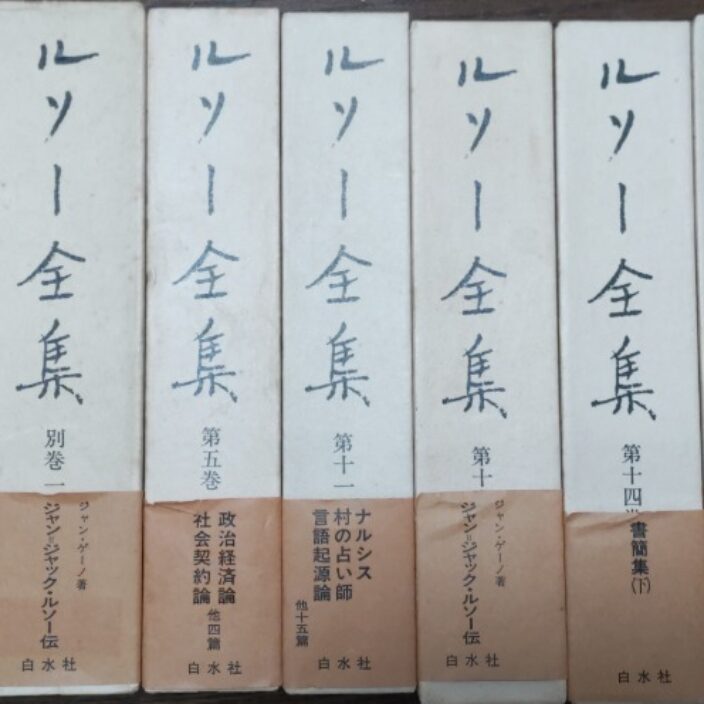 ルソー全集
別巻一
ジャン・ゲーノ著
ジャン=ジャック・ルソー伝
白水社
ルソー全集
第五巻
政治経済論
社会契約論
他四篇
白水社
ルソー全集
第十一
ナルシス
村の占い師
言語起源論
他十五篇
白水社
ルソー全集
第十
ジャン・ゲーノ著
ジャン=ジャック・ルソー伝
白水社
ルソー全集
第十四
書簡集(下)
白水社